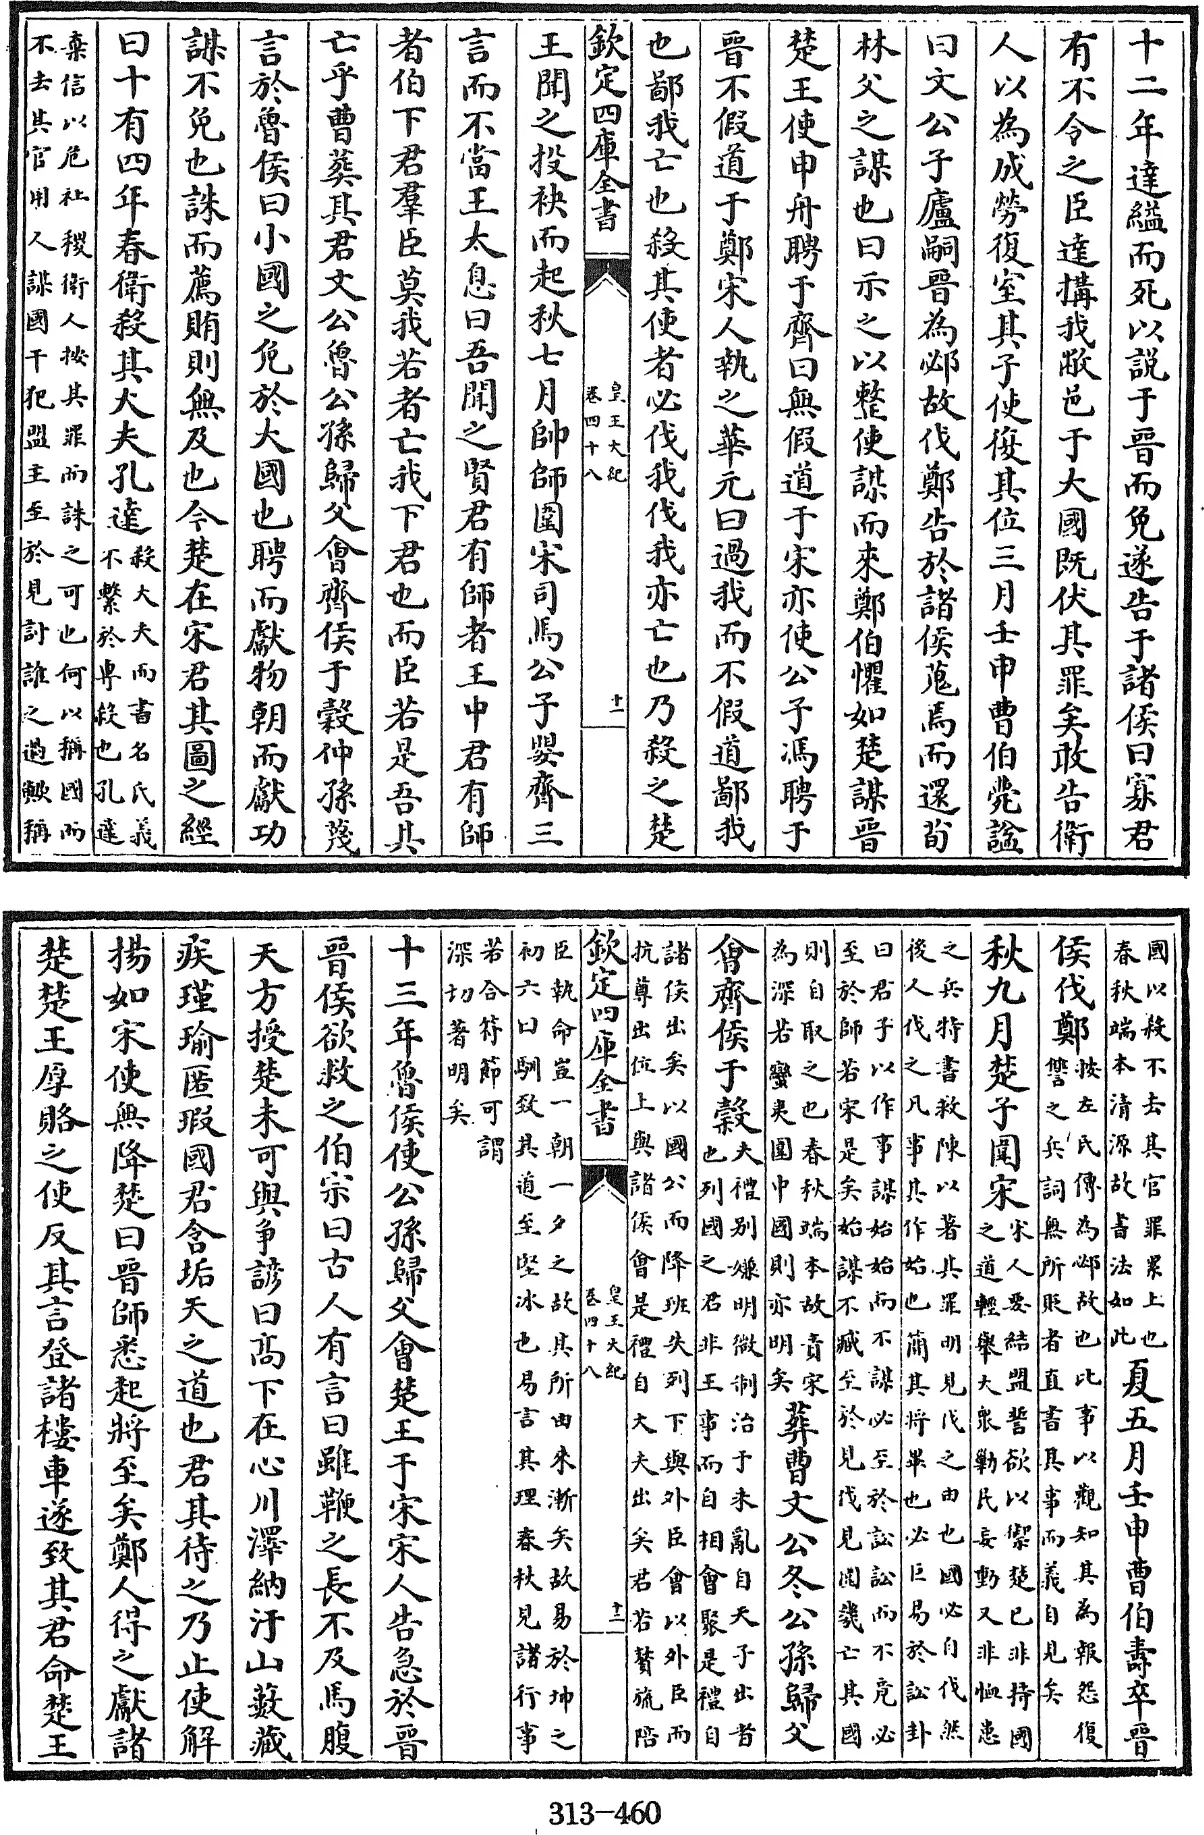 十二年達縊而死以說于晉而免遂告于諸侯曰寡君
有不令之臣達搆我敝邑于大國既伏其罪矣敢告衛
人以為成勞復室其子使復其位三月壬申曹伯薨諡
曰文公子廬嗣晉為邲故伐鄭告於諸侯蒐焉而還荀
林父之謀也曰示之以整使謀而來鄭伯懼如楚謀晉
楚王使申舟聘于齊曰無假道于宋亦使公子馮聘于
晉不假道于鄭宋人執之華元曰過我而不假道鄙我
也鄙我亡也殺其使者必伐我伐我亦亡也乃殺之楚
欽定四庫全書
皇王大紀
卷四十八
十一
王聞之投袂而起秋七月帥師圍宋司馬公子嬰齊三
言而不當王太息曰吾聞之賢君有師者王中君有師
者伯下君羣臣莫我若者亡我下君也而臣若是吾其
亡乎曹葬其君文公魯公孫歸父會齊侯于穀仲孫蔑
言於魯侯曰小國之免於大國也聘而獻物朝而獻功
謀不免也誅而薦賄則無及也今楚在宋君其圖之經
曰十有四年春衛殺其大夫孔達
殺大夫而書名氏義
不繫於專殺也孔達
棄信以危社稷衛人按其罪而誅之可也何以稱國而
不去其官用人謀國干犯盟主至於見討誰之過歟稱
國以殺不去其官罪累上也
春秋端本清源故書法如此
夏五月壬申曹伯壽卒晉
侯伐鄭
按左氏傳為邲故也比事以觀知其為報怨復
讐之兵詞無所貶者直書其事而義自見矣
秋九月楚子圍宋
宋人要結盟誓欲以禦楚已非持國
之道輕舉大衆勦民妄動又非恤患
之兵特書救陳以著其罪明見伐之由也國必自伐然
後人伐之凡事其作始也簡其將畢也必巨易於訟卦
曰君子以作事謀始始而不謀必至於訟訟而不竟必
至於師若宋是矣始謀不臧至於見伐見圍幾亡其國
則自取之也春秋端本故責宋
為深若蠻夷圍中國則亦明矣
葬曹文公冬公孫歸父
會齊侯于穀
夫禮別嫌明微制治于未亂自天子出者
也列國之君非王事而自相會聚是禮自
諸侯出矣以國公而降班失列下與外臣會以外臣而
抗尊出位上與諸侯會是禮自大夫出矣君若贅旒陪
欽定四庫全書
皇王大紀
卷四十八
十二
臣執命豈一朝一夕之故其所由來漸矣故易於坤之
初六曰馴致其道至堅冰也易言其理春秋見諸行事
若合符節可謂
深切著明矣
十三年魯侯使公孫歸父會楚王于宋宋人告急於晉
晉侯欲救之伯宗曰古人有言曰雖鞭之長不及馬腹
天方授楚未可與爭諺曰高下在心川澤納汙山藪藏
疾瑾瑜匿瑕國君含垢天之道也君其待之乃止使解
揚如宋使無降楚曰晉師悉起將至矣鄭人得之獻諸
楚楚王厚賂之使反其言登諸樓車遂致其君命楚王
313-460